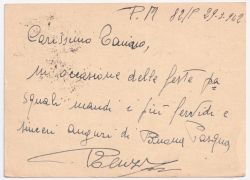 P.M. 82/P 29.3.942
Carissimo
in occasione delle feste pa
squali mandi e più fervidi e
sinceri auguri di Buona Pasqua